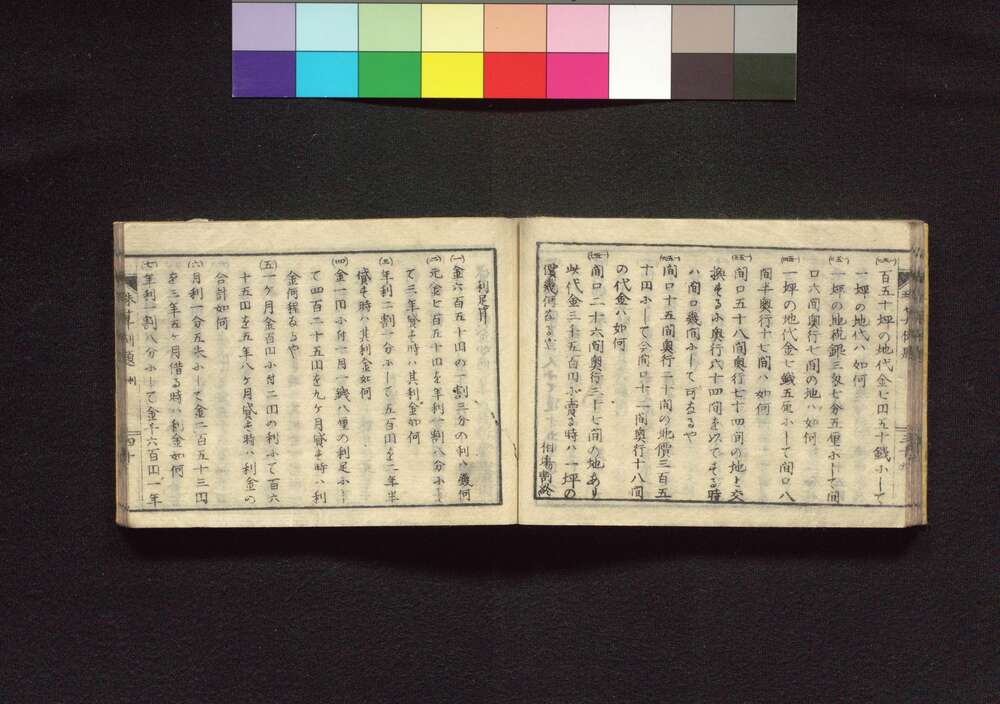 百五十坪の地代金七円五十銭ふして
一坪の地代ハ如何
一坪の地税銀三匁七分五厘ふして間
口六間奥行七間の地ハ如何
一坪の地代金七銭五厘ふして間口八
間半奥行十七間ハ如何
間口五十八間奥行七十四間の地と交
換するふ奥行六十四間を以てする時
ハ間口幾間ふして可なるや
間口十五間奥行二十間の地價三百五
十円ふして今間口十一間奥行十八間
の代金ハ如何
間口二十六間奥行三十七間の地あり
此代金三千五百円ふ賣る時ハ一坪の
價幾何なるや
相場割終
利足算
(一)金六百五十円の一割三分の利ハ幾何
(二)元金七百五十円を年利一割八分ふし
て三年貸す時ハ其利金如何
(三)年利二割一分ふして五百円を二年半
貸す時ハ其利金如何
(四)金一円ふ付一月一銭八厘の利足ふし
て四百二十五円を九ケ月貸す時ハ利
金何程なるや
(五)一ケ月金百円ふ付二円の利ふて百六
十五円を五年八ケ月貸す時ハ利金の
合計如何
(六)月利一分五朱ふして金二百五十三円
を三年五ケ月借る時ハ利金如何
(七)年利一割八分ふして金千六百円一年
珠算例題
四十